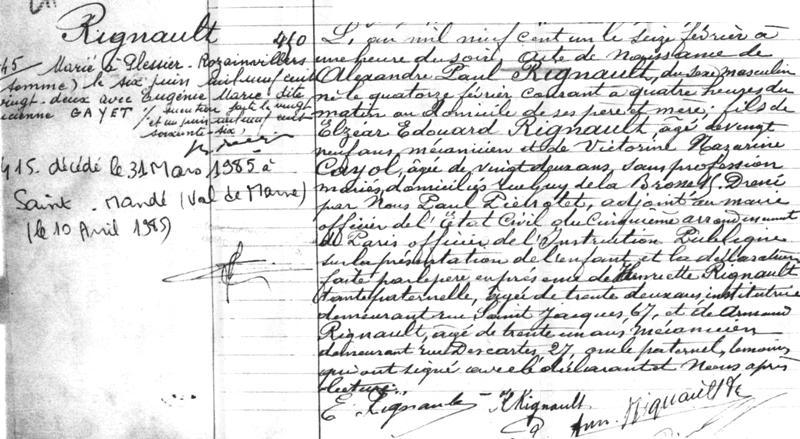 Rignault
410
Marié à Plessier-Rozainvillers
(Somme) le six juin mil neuf cent
vingt-deux avec Eugénie Marie dite
GAYET
mention faite le vingt
et un juin mil neuf cent
soixante-six,
décédé le 31 Mars 1985 à
Saint-Mandé (Val de Marne)
(le 10 Avril 1985)
L'an mil neuf cent un le seize février à
une heure du soir, acte de naissance de
Alexandre Paul Rignault, du sexe masculin
né le quatorze février courant à quatre heures du
matin au domicile de ses père et mère; fils de
Elzéar Edouard Rignault, âgé de vingt
neuf ans, mécanicien et de Victorine Nazarine
Cayol, âgée de vingt deux ans, sans profession
mariés, domiciliés rue Guy de la Brosse 5. Dressé
par Nous Paul adjoint au maire
officier de l'Etat Civil du Cinquième arrondissement
de Paris officier de l'Instruction Publique
sur la présentation de l'enfant et la déclaration
faite par le père en présence de Henriette Rignault
tante paternelle, âgée de trente deux ans institutrice
demeurant rue Saint Jacques, 67, et de Armand
Rignault, âgé de trente un ans mécanicien
demeurant rue Descartes 27, oncle paternel, témoins
qui ont signé avec le déclarant et Nous après
lecture.
E. Rignault H Rignault Arm. Rignault